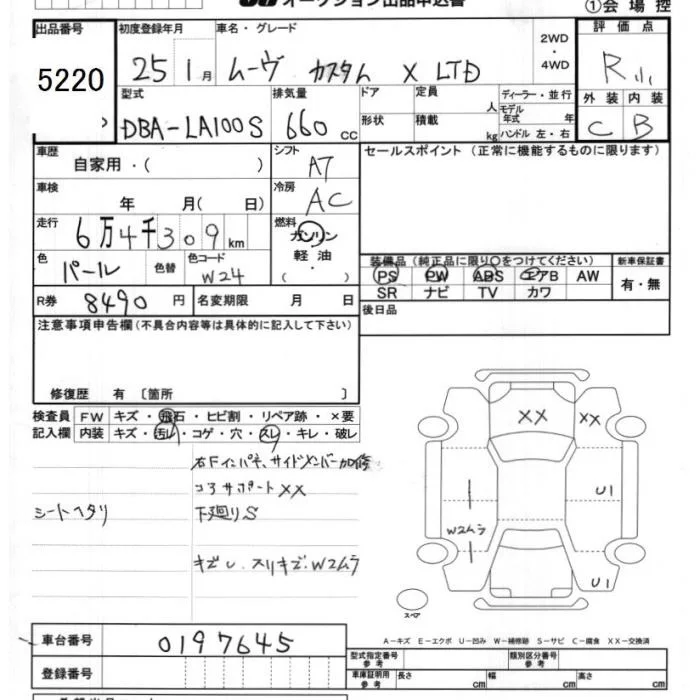 オークション出品申込書
①会場控
出品番号 初度登録年月 車名・グレード 2WD ・ 4WD 評価点
5220 25 1月 ムーヴ カスタム X LTD R小
型式 排気量 ドア 定員 人 ディーラー・並行 外装 内装
DBA-LA100S 660cc 形状 積載 kg モデル年式 年 ハンドル 左・右 C B
車歴 自家用・( ) シフト AT セールスポイント (正常に機能するものに限ります)
車検 年 月( 日) 冷房 AC
走行 6万4千309km 燃料 ガソリン 軽油・( )
色 パール 色替 色コード W24
装備品 (純正品に限り○をつけてください) 新車保証書
PS PW ABS エアB AW 有・無
SR ナビ TV カワ
R券 8490円 名変期限 月 日 後日品
注意事項申告欄 (不具合内容等は具体的に記入して下さい)
修復歴 有 〔箇所 〕
検査員 FW キズ・飛石・ヒビ割・リペア跡・×要
記入欄 内装 キズ・汚レ・コゲ・穴・スレ・キレ・破レ
右Fインパネ、サイドメンバー加修
コアサポートXX
シートヘタリ 下廻りS
キズU、スリキズ、W2ムラ
XX XX
U1
W2ムラ
U1
スペア
車台番号 0197645
A-キズ E-エクボ U-凹み W-補修跡 S-サビ C-腐食 XX-交換済
型式指定番号 参考 類別区分番号 参考
登録番号 車庫証明用 参考 長さ cm 幅 cm 高さ cm